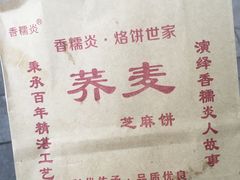 香糯炎®
香糯炎·烙饼世家
荞麦
芝麻饼
秉承百年精湛工艺
演绎香糯炎人故事
品质优良